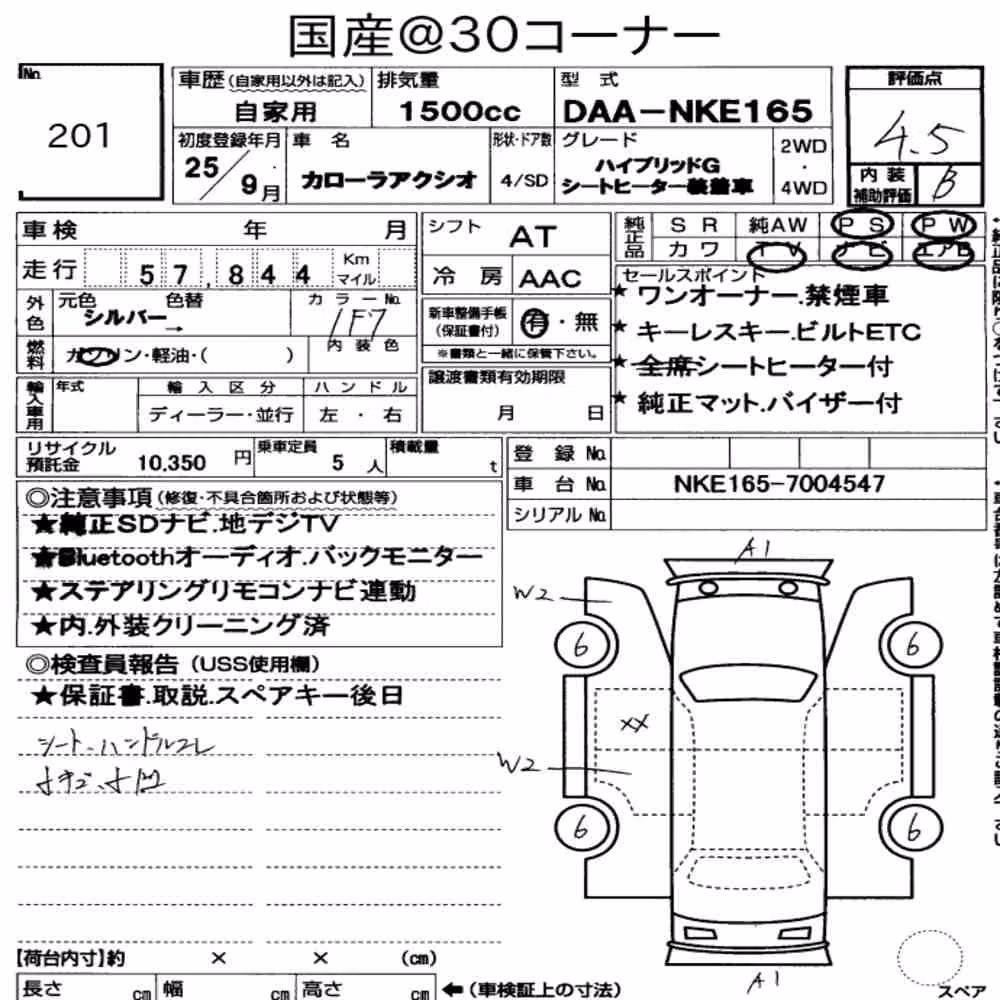 国産@30コーナー
No.
201
車歴(自家用以外は記入)
自家用
排気量
1500cc
型 式
DAA-NKE165
評価点
4.5
内装
補助評価
B
初度登録年月
25/9月
車 名
カローラアクシオ
形状・ドア数
4/SD
グレード
ハイブリッドG
シートヒーター装着車
2WD
・
4WD
車検 年 月
走行 57,844 Km マイル
外色
元色 色替
シルバー→
カラーNo.
1F7
燃料
ガソリン・軽油・( )
内装色
輸入車用
年式
輸入区分
ディーラー・並行
ハンドル
左 ・ 右
シフト
AT
冷 房
AAC
新車整備手帳
(保証書付)
有・無
※書類と一緒に保管下さい。
譲渡書類有効期限
月 日
純正品
SR 純AW PS PW
カワ TV ナビ エアB
セールスポイント
★ワンオーナー.禁煙車
★キーレスキー.ビルトETC
★全席シートヒーター付
★純正マット.バイザー付
リサイクル
預託金
10.350 円
乗車定員
5 人
積載量
t
登 録 No.
車 台 No.
NKE165-7004547
シリアルNo.
◎注意事項(修復・不具合箇所および状態等)
★純正SDナビ.地デジTV
★Bluetoothオーディオ.バックモニター
★ステアリングリモコンナビ連動
★内.外装クリーニング済
◎検査員報告(USS使用欄)
★保証書.取説.スペアキー後日
シート、ハンドルコレ
小キズ、小凹
A1
W2
6
6
XX
W2
6
6
A1
【荷台内寸】約 × × (cm)
長さ cm 幅 cm 高さ cm
←(車検証上の寸法)
スペア